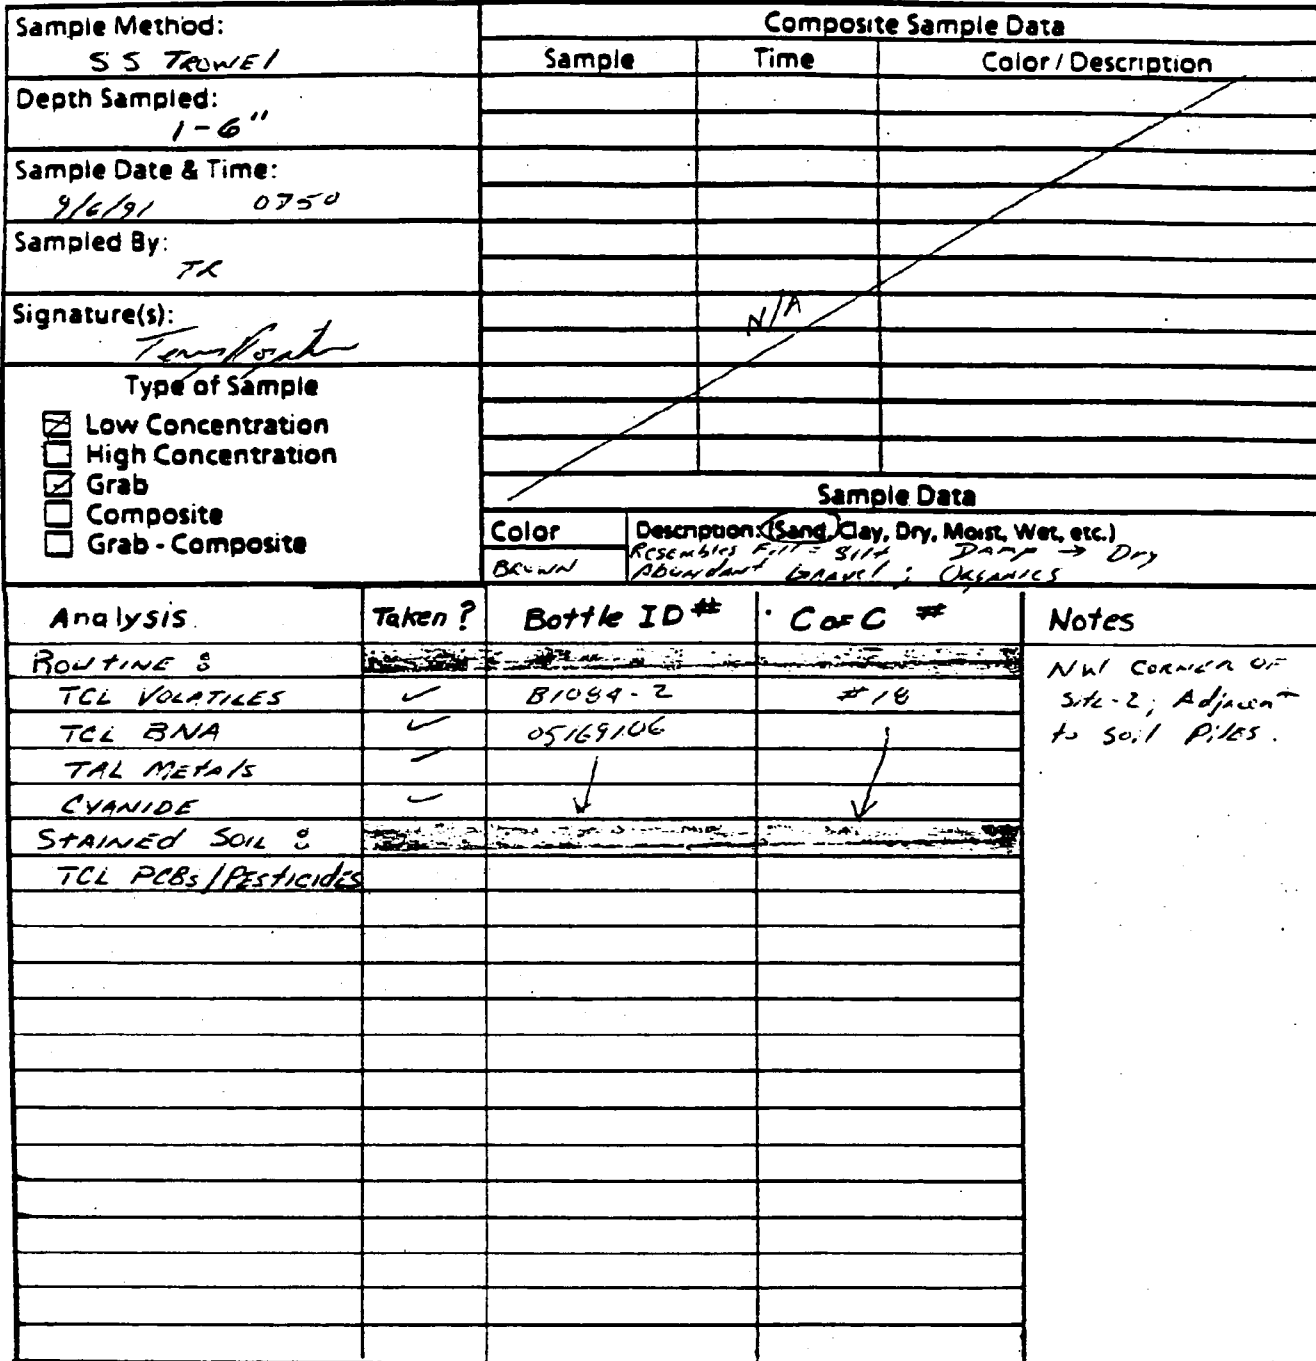 Sample Method:
SS TROWEl
Depth Sampled:
1-6"
Sample Date & Time:
9/6/91 0750
Sampled By:
TR
Signature(s):
Type of Sample
Low Concentration
High Concentration
Grab
Composite
Grab - Composite
Composite Sample Data
Sample Time Color / Description
N/A
Sample Data
Color Description: (Sand, Clay, Dry, Moist, Wet, etc.)
BROWN Resembles Fill - Silt Damp → Dry
Abundant Gravel ; Organics
Analysis Taken? Bottle ID # C OF C # Notes
ROUTINE :
TCL VOLATILES ✓ B1084-2 #18
TCL BNA ✓ 05169106
TAL METAlS ✓
CYANIDE ✓
STAINED SOIL :
TCL PCBs/PESTICIDES
NW CORNER OF
Site-2; Adjacent
to soil PilES.